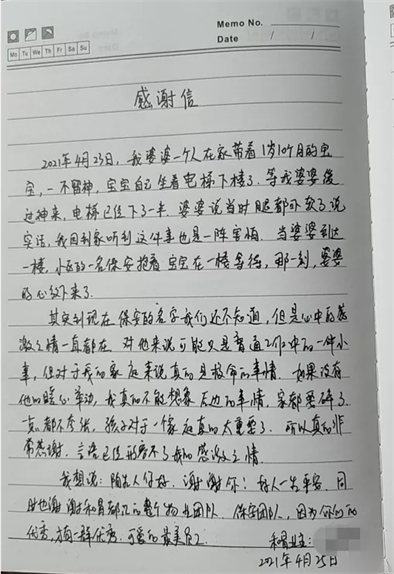 Memo No.
Mo Tu We Th Fr Sa Su
Date / /
感谢信
2021年4月23日，我婆婆一个人在家带着1岁10个月的宝
宝，一不留神，宝宝自己坐着电梯下楼了。等我婆婆缓
过神来，电梯已经下了一半。婆婆说当时腿都吓软了说
实话，我回到家听到这件事也是一阵害怕。当婆婆到达
一楼，小区的一名保安抱着宝宝在一楼等待，那一刻，婆婆
的心放下来了。
其实到现在保安的名字我们还不知道，但是心中的感
激之情一直都在。对他来说可能只是普通工作中的一件小
事，但对于我的家庭来说真的是救命的事情。如果没有
他的暖心举动，我真的不敢想象后边的事情，家都要碎了。
都不夸张，孩子对于一个家庭真的太重要了。所以真的非
常感谢，言语已经形容不了我的感激之情。
我想说：陌生人你好，谢谢你！好人一生平安。同
时也谢谢和昌都汇的整个物业团队、保安团队，因为你们的
优秀，才有一群优秀、可爱的最美员工。
和昌业主：
2021年4月25日